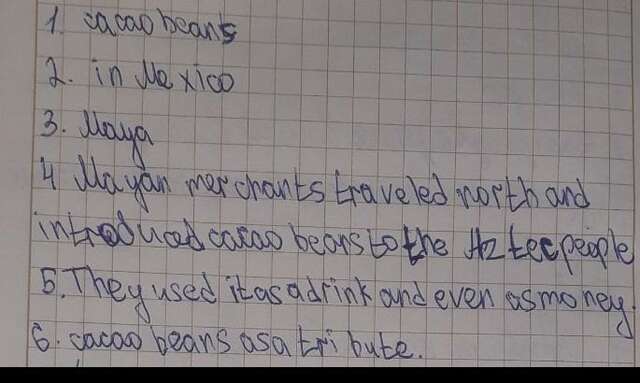 1. cacao beans
2. in Mexico
3. Maya
4 Mayan merchants traveled north and
introduced cacao beans to the Aztec people
5. They used it as a drink and even as money.
6. cacao beans as a tribute.